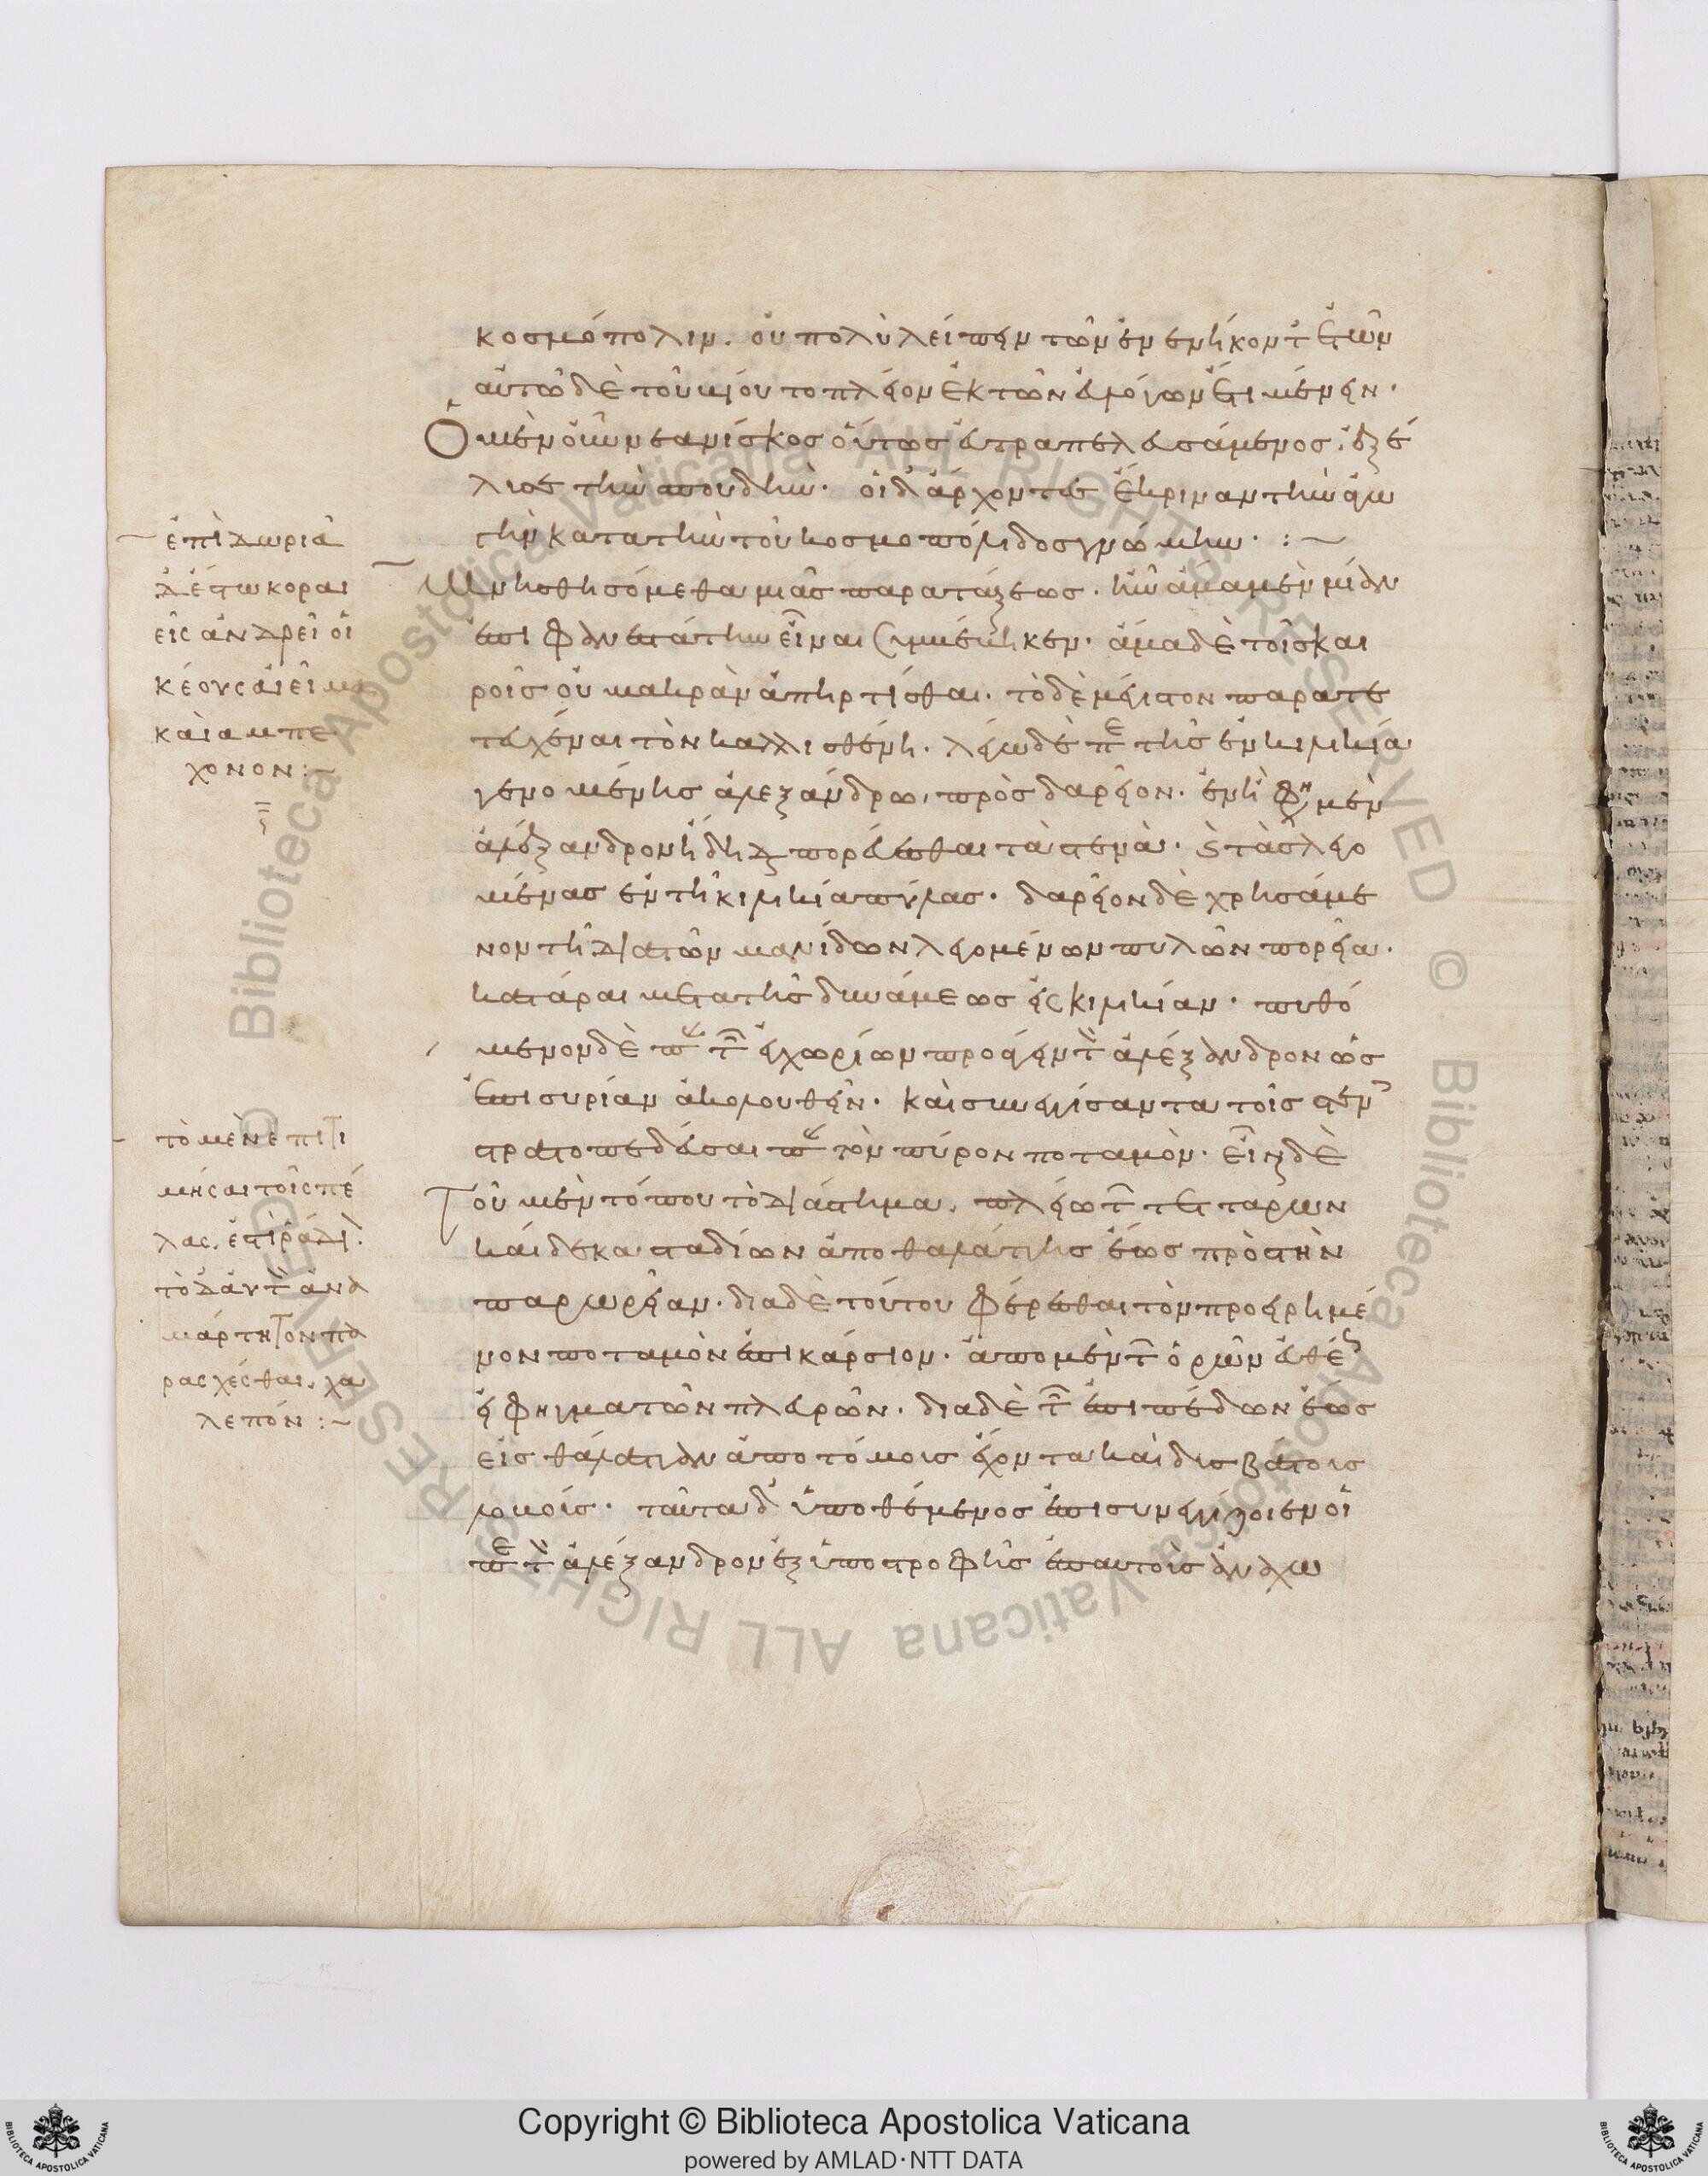 κοσμόπολιν. οὐ πολὺ λείπειν τῶν ἐνενήκοντ ἐτῶν
αὐτῶ δὲ τοῦ βίου το πλεῖον ἐκ τῶν εὐλόγων ἔτι μένειν.
Ὁ μὲν οὖν νεανίσκος οὕτως εὐτραπελευσάμενος, ἐξέ
λυσε τὴν σπουδὴν. οἱ δ' ἄρχοντες ἔκριναν τὴν ἀγω
γὴν κατα τὴν τοῦ κοσμοπόλιδος γνώμην. :~
Μνησθησόμεθα μιᾶς παρατάξεως. ἣν ἅμα μὲν μίαν
ἐπιφανεστάτην εἶναι συμβέβηκεν. ἅμα δὲ τοῖς και
ροῖς οὐ μακρὰν ἀπηρτίσθαι. τὸ δὲ μέγιστον παρατε
τευχέναι τὸν καλλισθένη. λέγω δὲ π τῆς ἐν κιλικία
γενομένης ἀλεξάνδρω, πρὸς δαρεῖον. ἐν ἧ φη μὲν
ἀλέξανδρον ἤδη διαπορεύεσθαι τὰ στενὰ. καὶ τὰς λεγο
μένας ἐν τῆ κιλικία πύλας. δαρεῖον δὲ χρησάμε
νον τῆ διὰ τῶν μανίδων λεγομένων πυλῶν πορεία.
κατάραι μετα τῆς δυνάμεως εἰς κιλικίαν. πυθό
μενον δὲ π τῶν ἐγχωρίων προάγειν τὸν ἀλέξανδρον ὡς
ἐπι συρίαν ἀκολουθεῖν. καὶ συνεγγίσαντα τοῖς στεν
στρατοπεδεῦσαι π τὸν πύρον ποταμὸν. εἶναι δὲ
Τοῦ μὲν τόπου τὸ διάστημα. πλείω τῶν τεττάρων
καὶ δέκα σταδίων ἀπο θαλάττης ἕως πρὸς τὴν
παρωρείαν. διὰ δὲ τούτου φέρεσθαι τὸν προειρημέ
νον ποταμὸν ἐπικάρσιον. ἀπο μὲν τῶν ὀρῶν εὐθέως
ἐκρήγματα τῶν πλευρῶν. διὰ δὲ τῶν ἐπιπέδων ἕως
εἰς θάλατταν ἀποτόμους ἔχοντα καὶ δυσβάτους
λόφους. ταῦτα δ' ὑποθέμενος ἐπι συνεγγίζοιεν οἱ
π τὸν ἀλέξανδρον ἐξ ὑποστροφῆς ἐπ αυτοὺς ἀναχω
τὸ μὲν ἐπιτι
μῆσαι τοῖς πέ
λας, ἐστὶ ῥάδι.
τὸ δ' αὐτὸν ἀνα
μάρτητον πα
ρασχέσθαι, χα
λεπόν :~
Copyright © Biblioteca Apostolica Vaticana
powered by AMLAD·NTT DATA